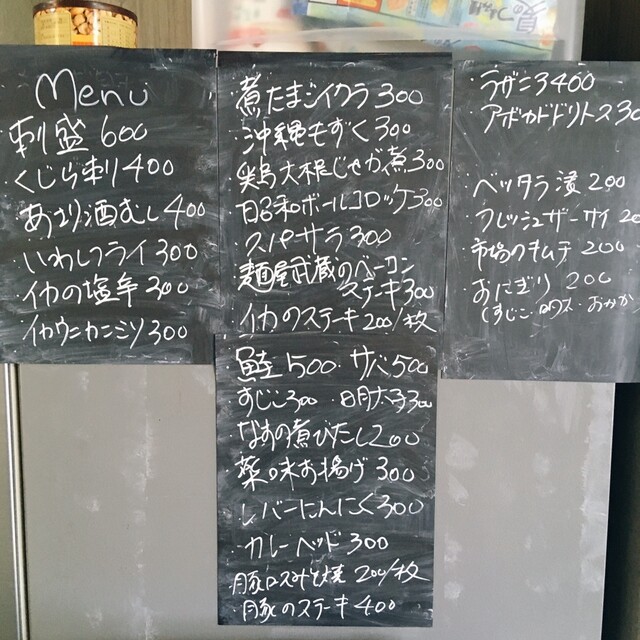 Menu
・刺盛 600
・くじら刺り 400
・あさり酒むし 400
・いわしフライ 300
・イカの塩辛 300
・イカウニカニミソ 300
・煮たまごイクラ 300
・沖縄もずく 300
・鶏大根じゃが煮 300
・昭和ボールコロッケ 300
・スパサラ 300
・麺屋武蔵のベーコン
ステーキ 300
・イカのステーキ 200/枚
・鮭 500 ・サバ 500
・すじこ 300 ・明太子 300
・なすの煮びたし 200
・薬味お揚げ 300
・レバーにんにく 300
・カレーヘッド 300
・豚ロスみそ焼 200/枚
・豚のステーキ 400
・ラザニア 400
・アボカドドリトス 30
・ベッタラ漬 200
・フレッシュザーサイ 20
・市場のキムチ 200
・おにぎり 200
(すじこ・